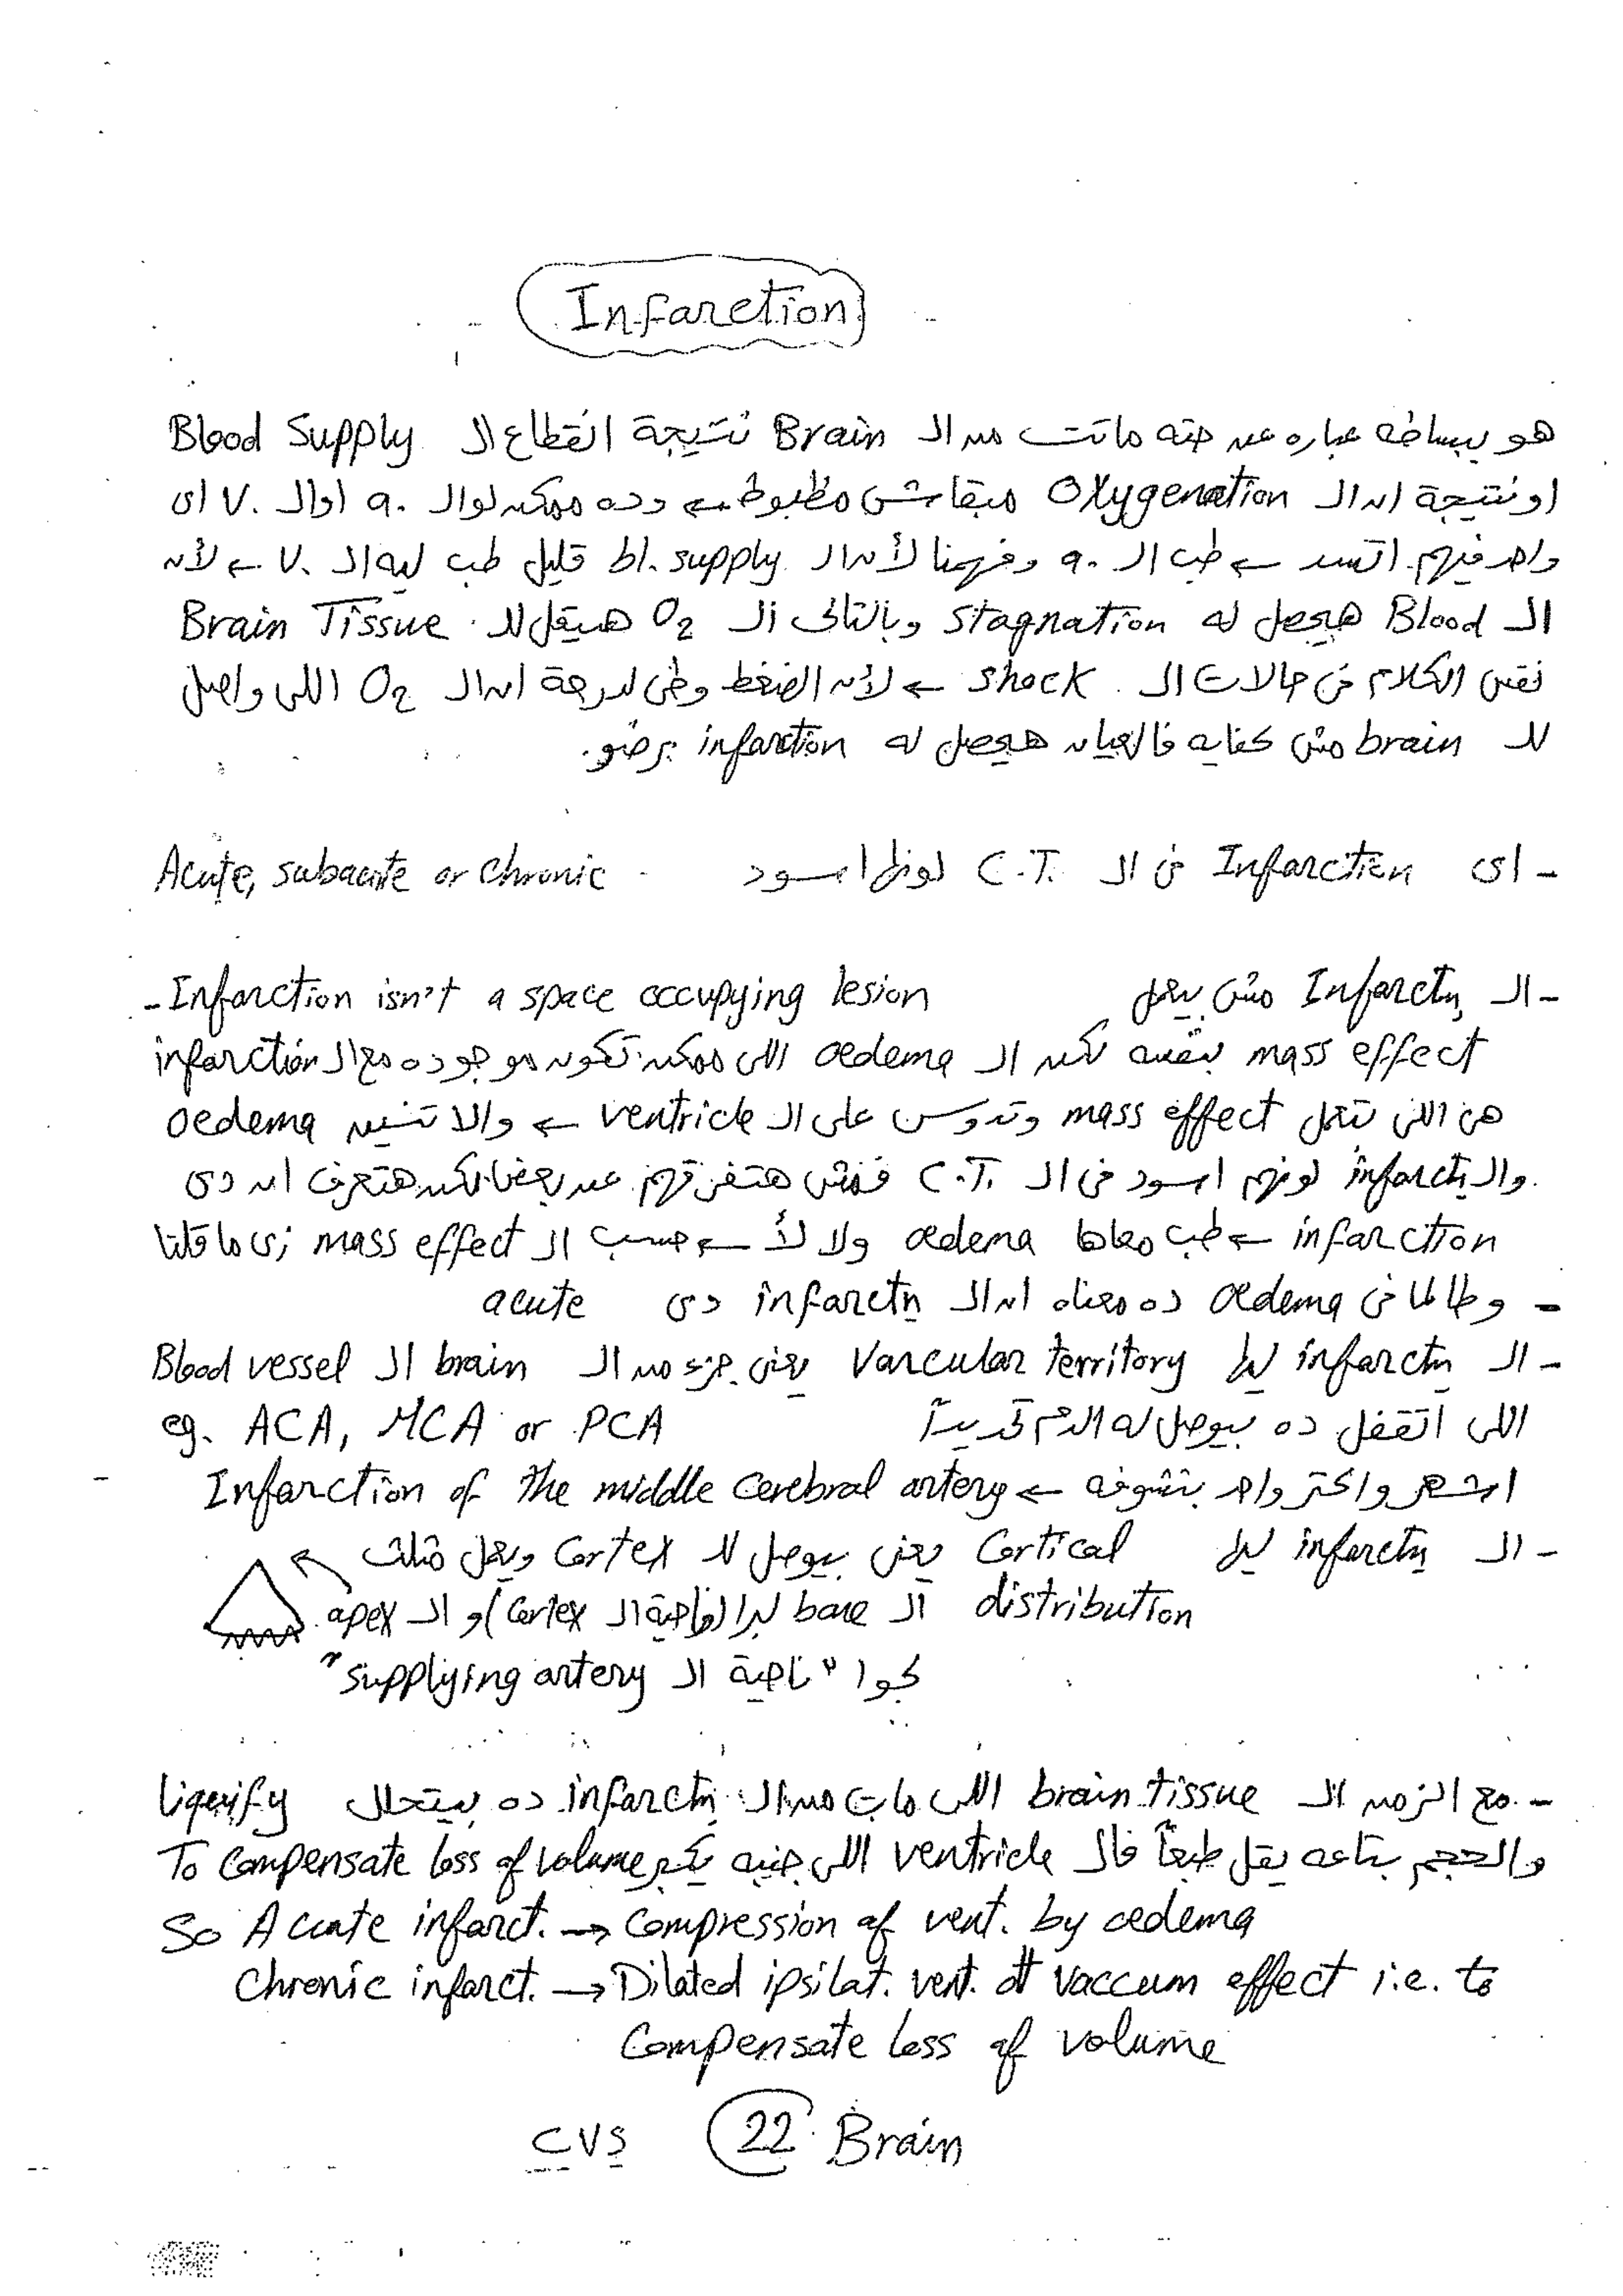 Infarction
هو ببساطه عباره عن حته ماتت من ال Brain نتيجة انقطاع ال Blood Supply
او نتيجة ان ال Oxygenation مبقاش مظبوط ← وده ممكن لو ال a. او ال v. اى
واحد فيهم اتسد ← طب ال a. وفهمنا لأن ال supply قليل طب ليه ال v. ← لأن
ال Blood هيحصل له stagnation وبالتالى ال O2 هيقل لل Brain Tissue
نفس الكلام فى حالات ال shock ← لأن الضغط وطى لدرجة ان ال O2 اللى واصل
لل brain مش كفايه فالعيان هيحصل له infarction برضو.
- اى Infarction فى ال C.T. لونها اسود Acute, subacute or chronic
- ال Infarctn مش بيعمل - Infarction isn't a space occupying lesion
mass effect بنفسه لكن ال oedema اللى ممكن تكون موجوده مع ال infarction
هى اللى تعمل mass effect وتدوس على ال ventricle ← والاتنين oedema
وال infarctn لونهم اسود فى ال C.T. فمش هتفرقهم عن بعض لكن هتعرف ان دى
infarction ← طب معاها oedema ولا لأ ← حسب ال mass effect زى ما قلنا
- وطالما فى oedema ده معناه ان ال infarctn دى acute
- ال infarctn ليها Varcular territory يعنى جزء من ال brain ال Blood vessel
اللى اتقفل ده بيوصل له الدم تحديداً eg. ACA, MCA or PCA
اشهر واكتر واحد بنشوفه ← Infarction of the middle cerebral artery
- ال infarctn ليها Cortical يعنى بيوصل لل Cortex ويعمل مثلث
distribution ال base لبرا (ناحية ال Cortex) و ال apex
لجوا "ناحية ال supplying artery"
- مع الزمن ال brain tissue اللى مات من ال infarctn ده بيتحلل liquify
والحجم بتاعه يقل طبعاً فال ventricle اللى جنبه يكبر To Compensate loss of volume
So Acute infarct. → Compression of vent. by oedema
Chronic infarct. → Dilated ipsilat. vent. dt vaccum effect i.e. to
Compensate loss of volume
CVS 22 Brain